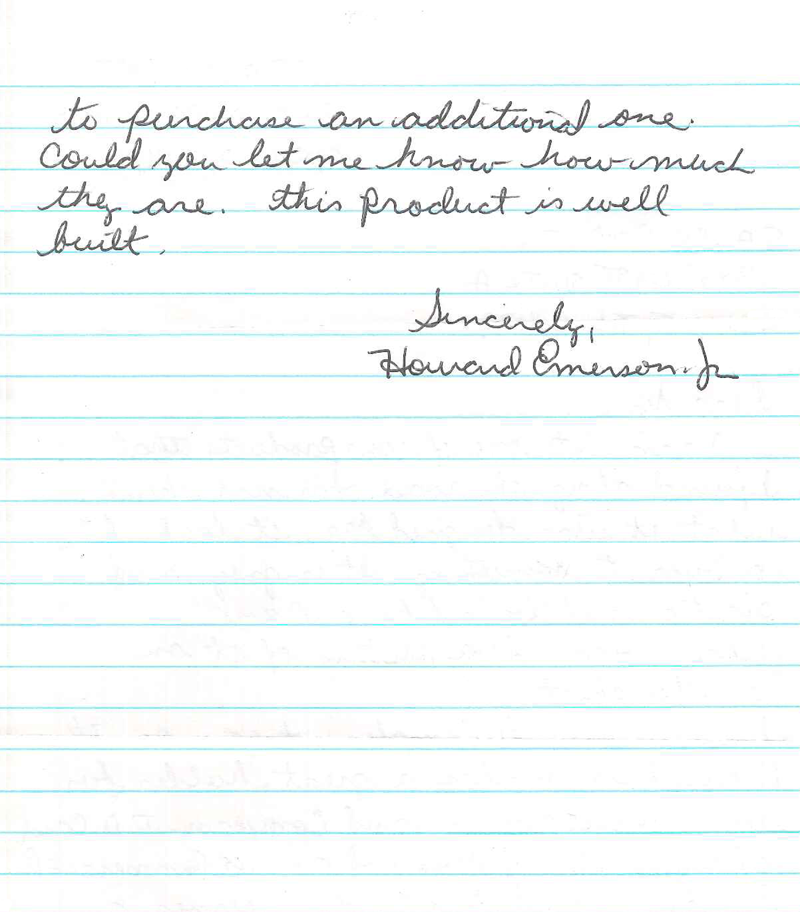 to purchase an additional one.
Could you let me know how much
they are. this product is well
built.
Sincerely,
Howard Emerson Jr